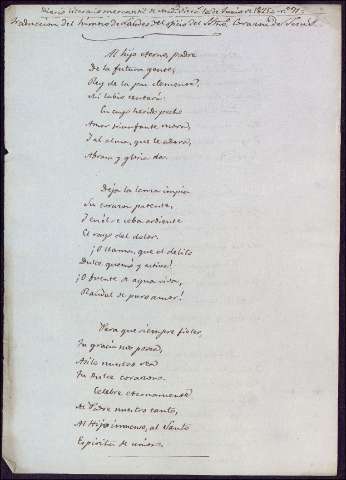 Diario literario mercantil de Madrid 10 de Junio de 1825. nº 71.
Traduccion del himno de Laudes del oficio del Sdo. Corazon de Jesus.
Al hijo eterno, padre
De la futura gente,
Rey de la paz clemente,
Mi labio cantará.
En cuyo herido pecho
Amor triunfante mora,
Y al alma, que le adora,
Abrasa y gloria da.
Deja la lanza impia
Su corazon patente,
Y en él se ceba ardiente
El rayo del dolor.
¡O llama, que el delito
Dulce quemó y activa!
¡O fuente de agua viva,
Raudal de puro amor!
Para que siempre fieles,
Tu gracia nos posea,
Asilo nuestro sea
Tu dulce corazon.
Celebre eternamente
Al Padre nuestro canto,
Al Hijo inmenso, al Santo
Espíritu de union.